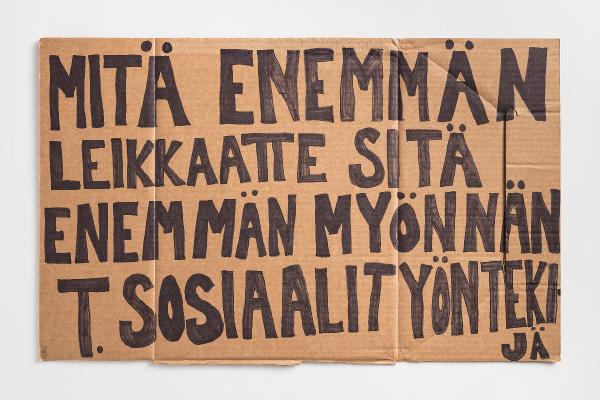 MITÄ ENEMMÄN
LEIKKAATTE SITÄ
ENEMMÄN MYÖNNÄN
T. SOSIAALITYÖNTEKI
JÄ